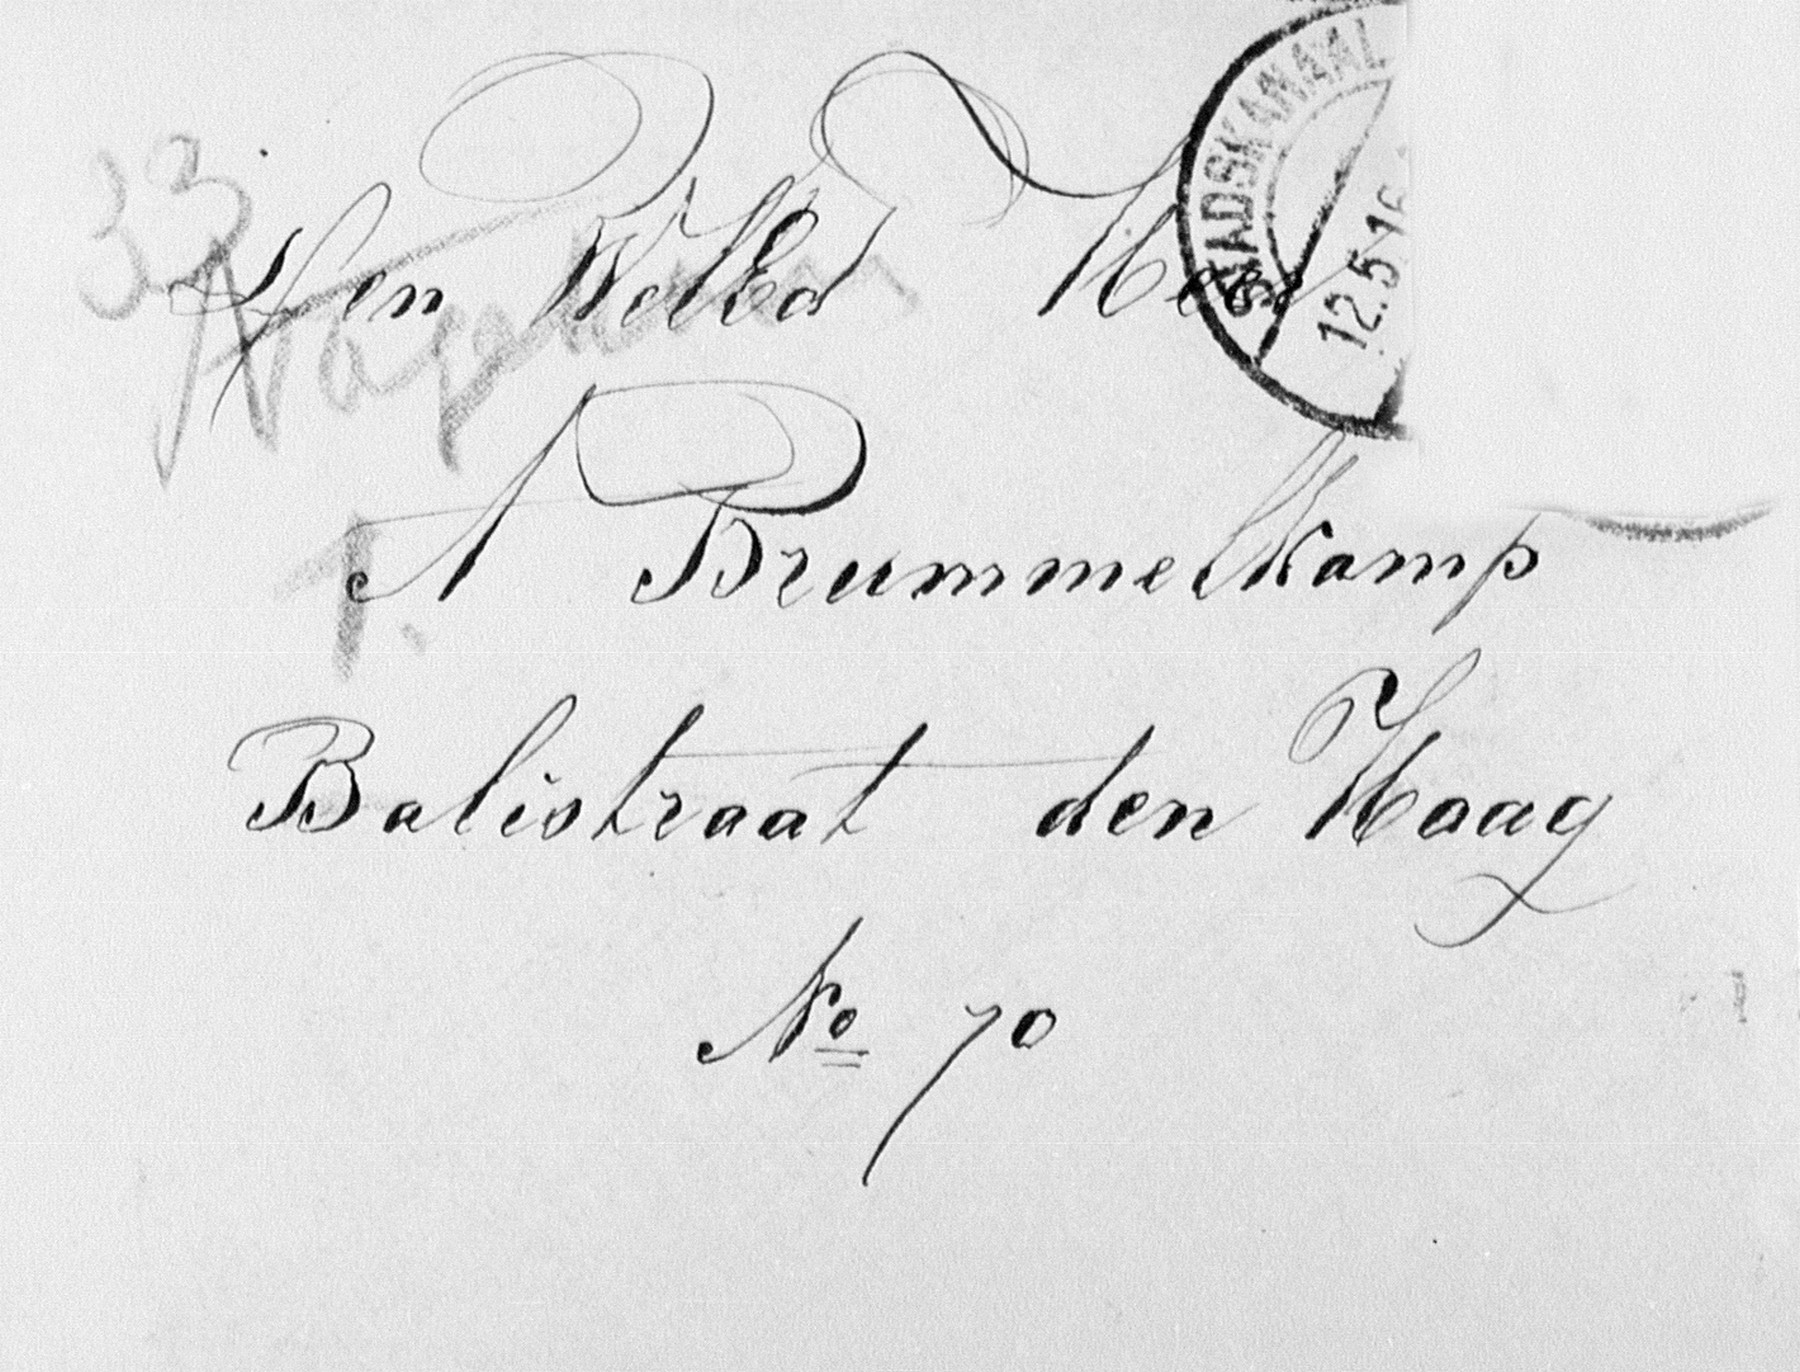 STADSKANAAL
12.5.16
33
Nagezien
Den WelEd Heer
A Brummelkamp
T.
Balistraat den Haag
No 70